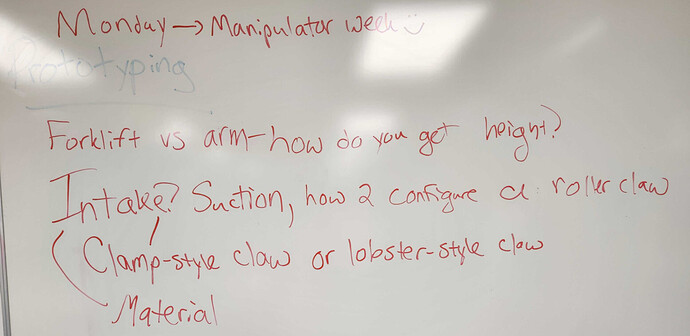 Monday → Manipulator week :)
Prototyping
Forklift vs arm - how do you get height?
Intake? Suction, how 2 configure a roller claw
Clamp-style claw or lobster-style claw
Material